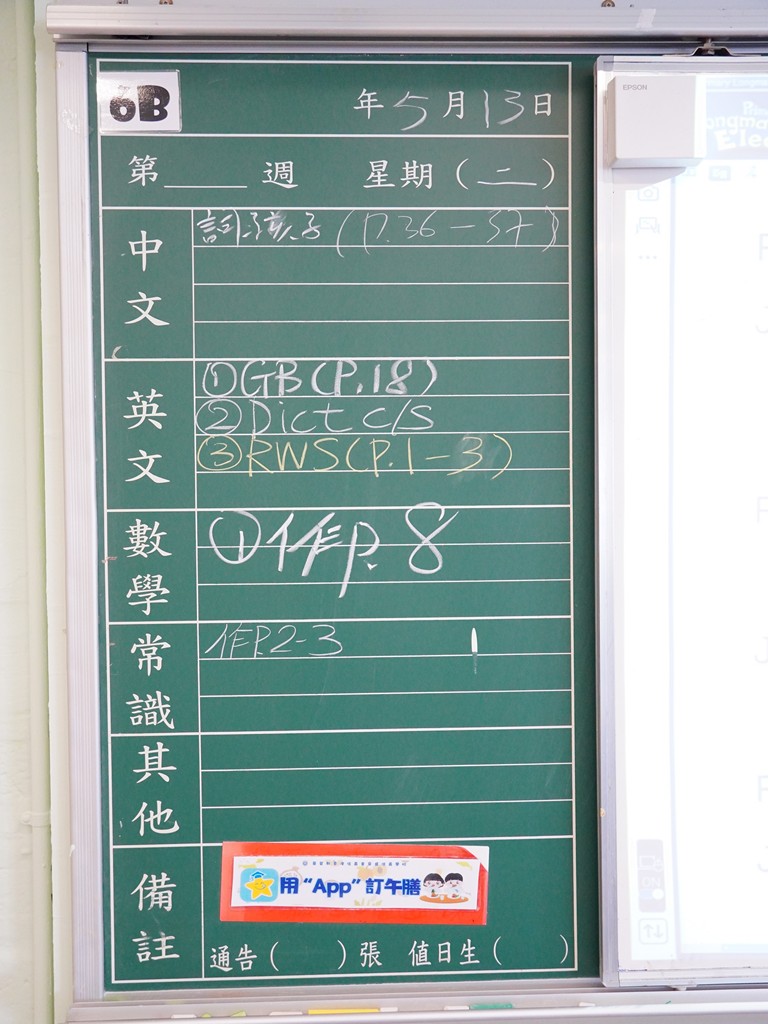 6B
年 5 月 13 日
第____週 星期（二）
中文
詞 孩子 (P.36－37)
英文
①GB(P.18)
②Dict c/s
③RWS(P.1-3)
數學
①作P.8
常識
作P.2-3
其他
備註
用“App”訂午膳
通告（ ）張 值日生（ ）
EPSON